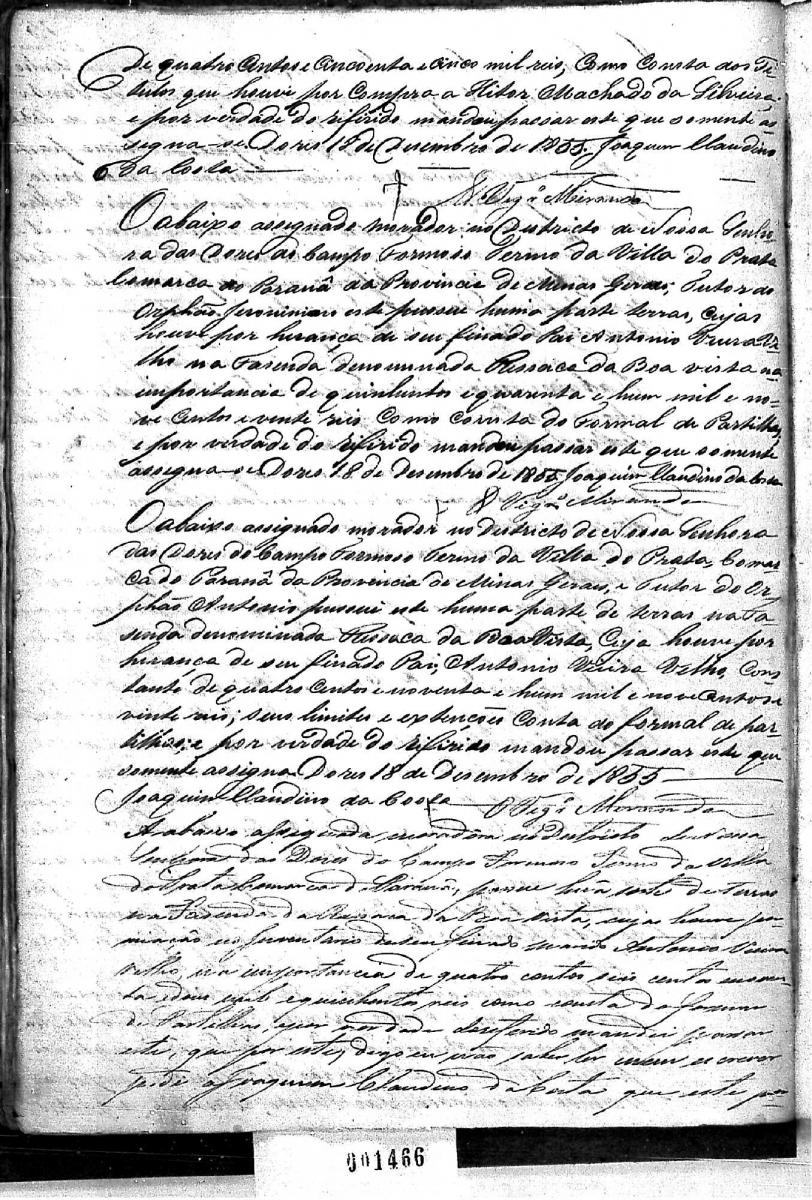 De quatro centos e cincoenta e cinco mil reis, Como Consta dos Ti-
tulos que houve por Compra a Hitor Machado da Silveira
e por verdade do rifirido mandou passar este que somente as
segna-se Dores 18 de Desembro de 1855, Joaquim Claudino
da Costa
O Vigº Miranda
O abaixo assignado morador no Districto de Nossa Senho
ra das Dores do Campo Formoso Termo da Villa do Prata
Comarca do Paranâ da Provincia de Minas Gerais, Tutor do
Orphão Jeronimo este possue huma parte terras, Cujas
houve por herança de seu finado Pai Antonio Vieira Ve
lho na Fasenda denominada Ressaca da Boa vista na
importancia de quinhentos e quarenta e hum mil e no-
ve centos e vente reis Como Consta do Formal de Partilhas,
e por verdade do rifirido mandou passar este que somente
assegna-se Dores 18 de Desembro de 1855 Joaquim Claudino da Costa
O Vigº Miranda
O abaixo assignado morador no Destricto de Nossa Senhora
das Dores do Campo Formoso Termo da Villa do Prata, Comar
ca do Paranâ da Provencia de Minas Gerais, e Tutor do Or
phão Antonio possui este huma parte de terras na Fa
senda denominada Ressaca da Boa Vista, Cuja houve por
herança de seu finado Pai, Antonio Vieira Velho, Cons
tante de quatro centos e noventa e hum mil e nove centos e
vinte reis; seus limites e extenções Conta do formal de par
tilhas; e por verdade do rifirido mandou passar este que
somente assigna Dores 18 de Desembro de 1855
Joaquim Claudino da Costa O Vigº Miranda
A abaixo assignada moradora no Destricto de Nossa
Senhora das Dores do Campo Formoso Termo da Villa
do Prata Comarca do Paranâ, possue huã sorte de terras
na Fazenda da Ressaca da Boa Vista, cujas houve por
miação no Inventario de seu finado marido Antonio Vieira
Velho, na importancia de quatro contos seis centos e noven
ta e dous mil e quinhentos reis como consta do Formal
de Partilhas, e por verdade do referido mandei passar
este, que por este, digo eu não saber ler nem escrever
pedi a Joaquim Claudino da Costa que este por
001466